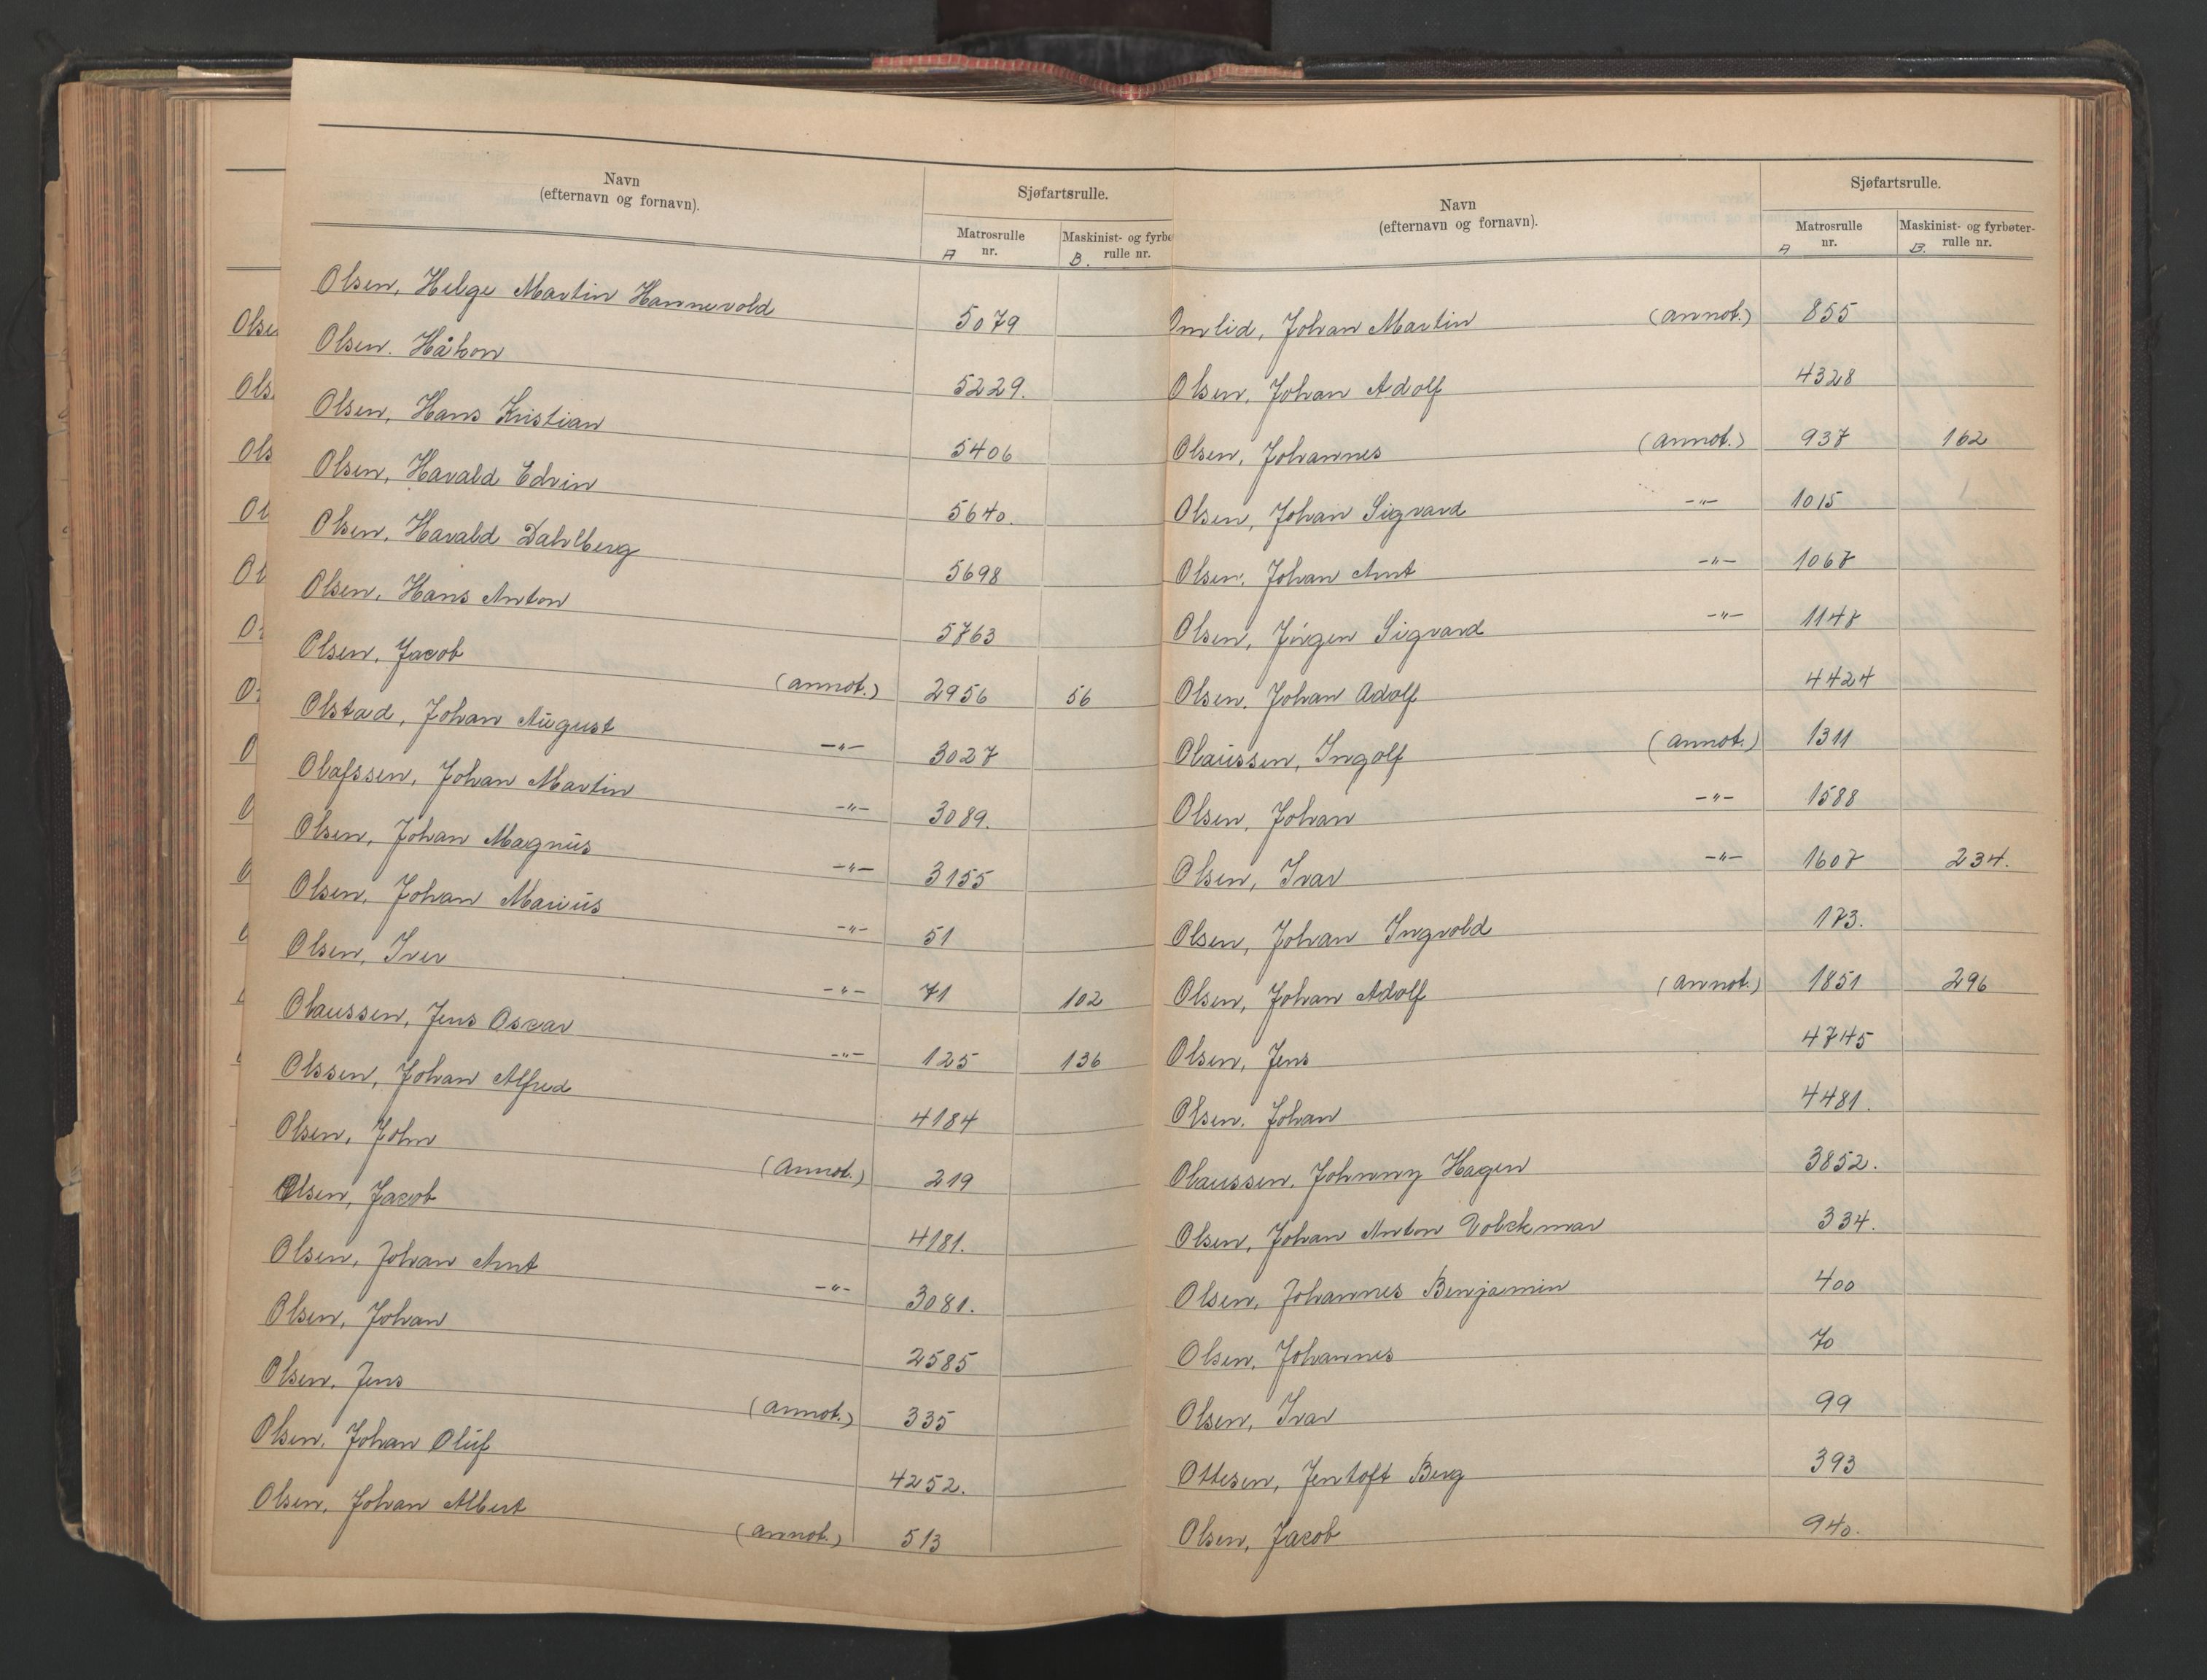 Navn
(efternavn og fornavn).
Sjøfartsrulle.
Matrosrulle
A nr.
Maskinist- og fyrbø
B. rulle nr.
Olsen, Helge Martin Hannevold 5079
Olsen. Håkon 5229.
Olsen, Hans Kristian 5406
Olsen, Harald Edvin 5640.
Olsen, Harald Dahlberg 5698
Olsen, Hans Anton 5763
Olsen, Jacob (annot.) 2956 56
Olstad, Johan August -"- 3027
Olafssen, Johan Martin -"- 3089.
Olsen, Johan Magnus -"- 3155
Olsen, Johan Marius -"- 51
Olsen, Iver -"- 71 102
Olaussen, Jens Oscar -"- 125 136
Olssen, Johan Alfred 4184
Olsen, John (annot.) 219
Olsen, Jacob 4181.
Olsen, Johan Arnt -"- 3081.
Olsen, Johan 2585
Olsen, Jens (annot.) 335
Olsen, Johan Oluf 4252.
Olsen, Johan Albert (annot.) 513
Navn
(efternavn og fornavn).
Sjøfartsrulle.
Matrosrulle
A nr.
Maskinist- og fyrbøter-
B. rulle nr.
Omlid, Johan Martin (annot.) 855
Olsen, Johan Adolf 4328
Olsen, Johannes (annot.) 937 162
Olsen, Johan Sigvard -"- 1015
Olsen, Johan Arnt -"- 1067
Olsen, Jörgen Sigvard -"- 1147
Olsen. Johan Adolf 4424
Olaussen, Ingolf (annot.) 1311
Olsen, Johan -"- 1588
Olsen, Ivar -"- 1607 234.
Olsen, Johan Ingvold 173.
Olsen, Johan Adolf (annot.) 1851 296
Olsen, Jens 4745
Olsen. Johan 4481.
Olaussen, Johnny Hagen 3852.
Olsen, Johan Anton Volckmar 334.
Olsen, Johannes Benjamin 400
Olsen, Johannes 70
Olsen, Ivar 99
Ottesen, Jentoft Berg 393
Olsen, Jacob 940.